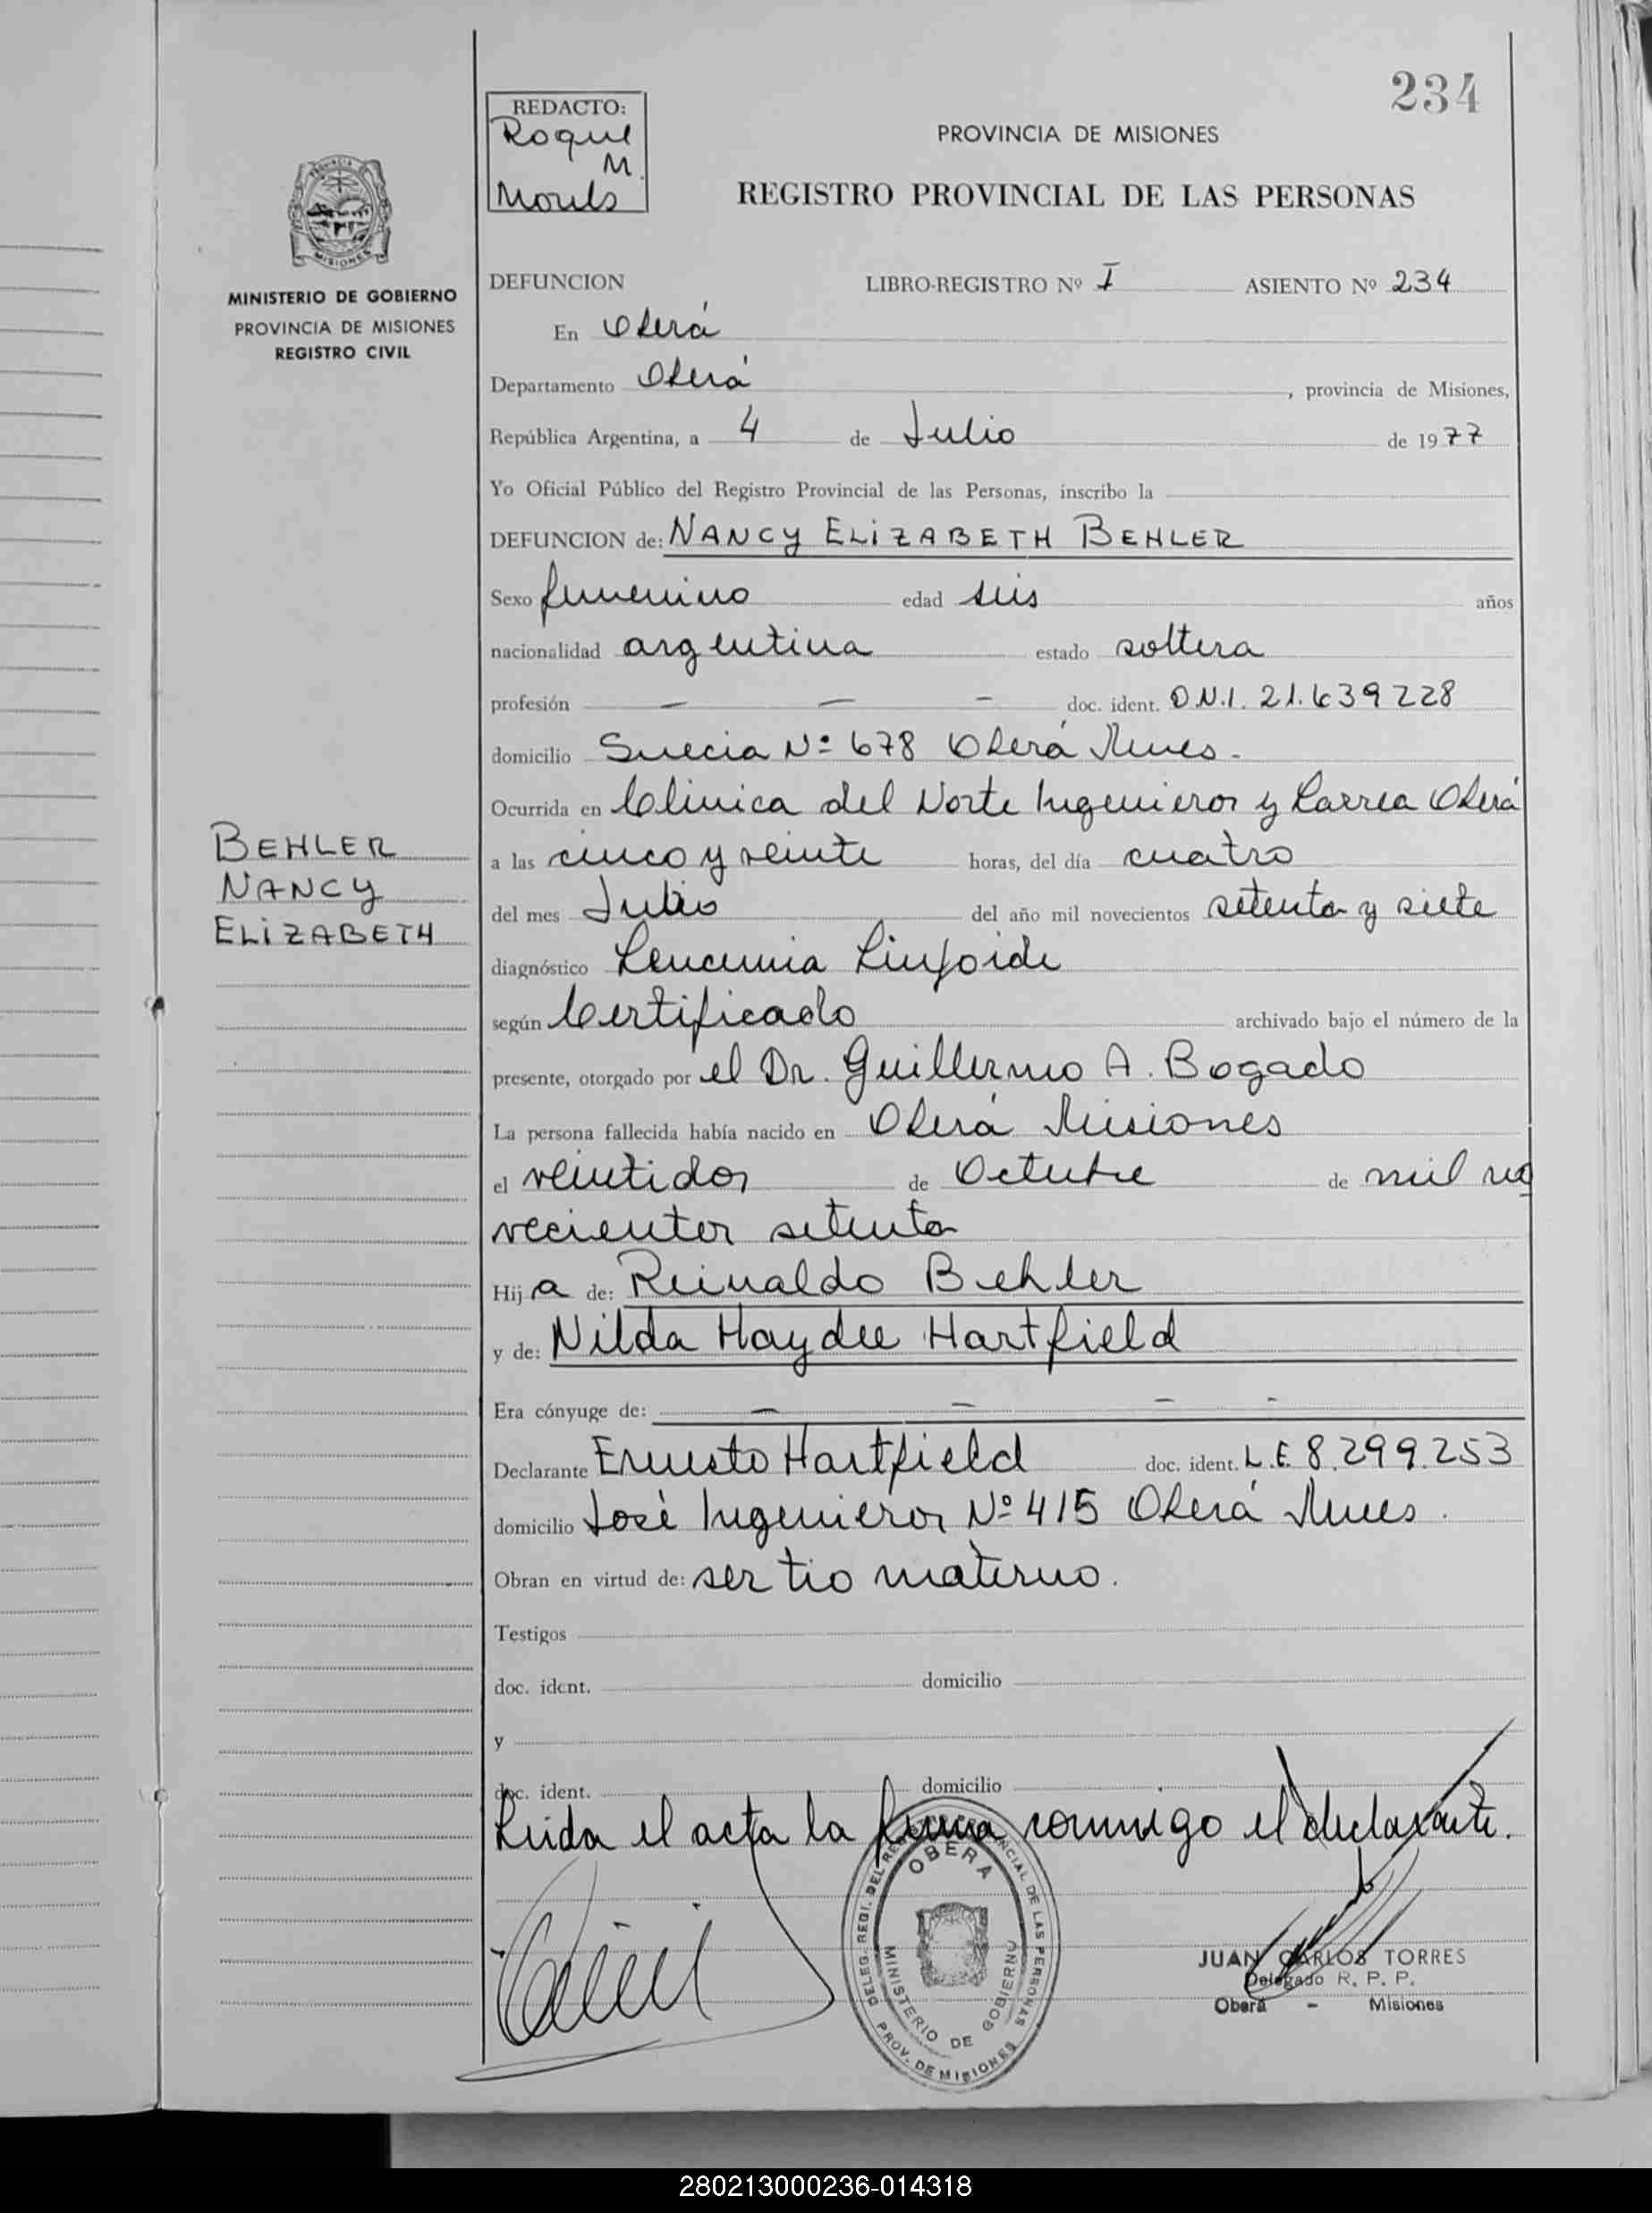 234
REDACTO:
Roque
M.
PROVINCIA DE MISIONES
REGISTRO PROVINCIAL DE LAS PERSONAS
MINISTERIO DE GOBIERNO
PROVINCIA DE MISIONES
REGISTRO CIVIL
DEFUNCION LIBRO-REGISTRO Nº I ASIENTO Nº 234
En Oberá
Departamento Oberá, provincia de Misiones,
República Argentina, a 4 de Julio de 1977
Yo Oficial Público del Registro Provincial de las Personas, inscribo la
DEFUNCION de: NANCY ELIZABETH BEHLER
Sexo femenino edad seis años
nacionalidad argentina estado soltera
profesión — — — doc. ident. D.N.I. 21.639228
domicilio Suecia Nº 678 Oberá Mnes.
Ocurrida en Clinica del Norte Ingenieros y Larrea Oberá
BEHLER
NANCY
ELIZABETH
a las cinco y veinte horas, del día cuatro
del mes Julio del año mil novecientos setenta y siete
diagnóstico Leucemia Linfoide
según Certificado archivado bajo el número de la
presente, otorgado por el Dr. Guillermo A. Bogado
La persona fallecida había nacido en Oberá Misiones
el veintidos de Octubre de mil no
vecientos setenta
Hija de: Reinaldo Behler
y de: Nilda Haydee Hartfield
Era cónyuge de: — — — -
Declarante Ernesto Hartfield doc. ident. L.E. 8.299.253
domicilio José Ingenieros Nº 415 Oberá Mnes.
Obran en virtud de: ser tio materno.
Testigos
doc. ident. domicilio
y
doc. ident. domicilio
Leida el acta la firma conmigo el declarante.
DELEG. REGI. DEL REG. PROVINCIAL DE LAS PERSONAS
OBERA
MINISTERIO DE GOBIERNO
PROV. DE MISIONES
JUAN CARLOS TORRES
Delegado R. P. P.
Oberá - Misiones
280213000236-014318